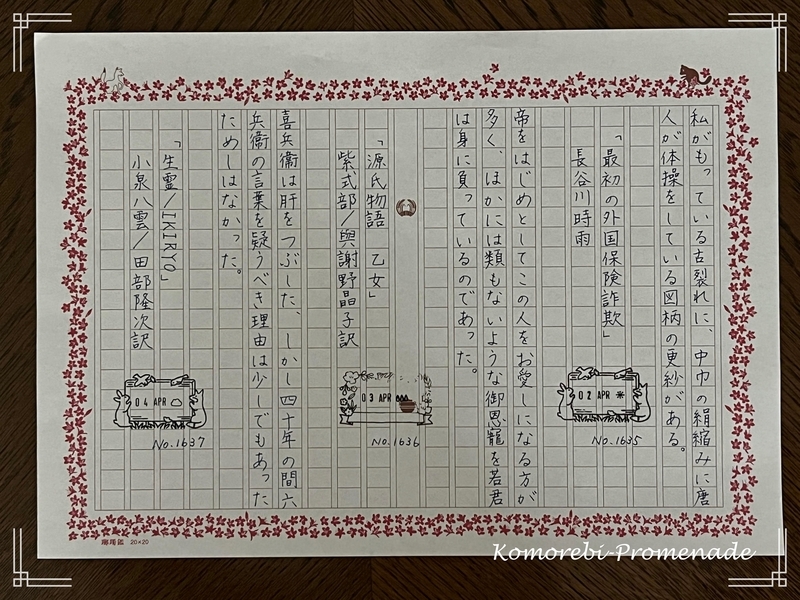 私がもっている古裂れに、中巾の絹縮みに唐
人が体操をしている図柄の更紗がある。
「最初の外国保険詐欺」
長谷川時雨
02 APR
No.1635
帝をはじめとしてこの人をお愛しになる方が
多く、ほかには類もないような御恩寵を若君
は身に負っているのであった。
「源氏物語 乙女」
紫式部/與謝野晶子訳
03 APR
No.1636
喜兵衞は肝をつぶした、しかし四十年の間六
兵衞の言葉を疑うべき理由は少しでもあった
ためしはなかった。
「生霊/IKIRYO」
小泉八雲/田部隆次訳
04 APR
No.1637
20×20
Komorebi-Promenade